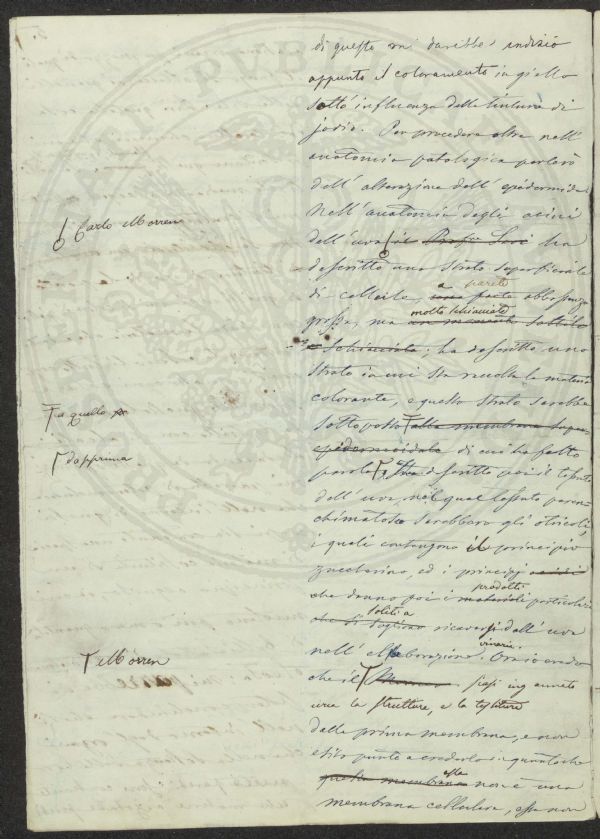 di questo mi darebbe indizio
appunto il coloramento in giallo
sotto influenza della tintura di
jodio. Per procedere oltre nell'
anatomia patologica parlerò
dell'alterazione dell'epidermide
Nell'anatomia degli acini
Carlo Morren
dell'uva il Prof. Savi ha
descritto uno strato superficiale
a parete
di cellule, abbastanza
molto schiacciate
grosse, ma
e schiacciata: ha descritto uno
strato in cui sta raccolta la materia
colorante, e questo strato sarebbe
a quello
sottoposto alla membrana super
epidermoidale di cui ha fatto
dapprima
parola. Ha descritto poi il tessuto
dell'uva, nel quale tessuto paren
chimatoso sarebbero gli otricoli,
i quali contengono il principio
zuccherino, ed i principj acidi
prodotti
che danno poi i materiali particolari
soliti a
che si sogliono ricavarsi dall'uva
vinaria.
nell'elaborazione. Ora io credo
Morren
che il siasi ingannato
circa la struttura, e la tessitura
della prima membrana, e non
esito punto a crederlo in quantoche
essa
questa membrana non è una
membrana cellulare, essa non